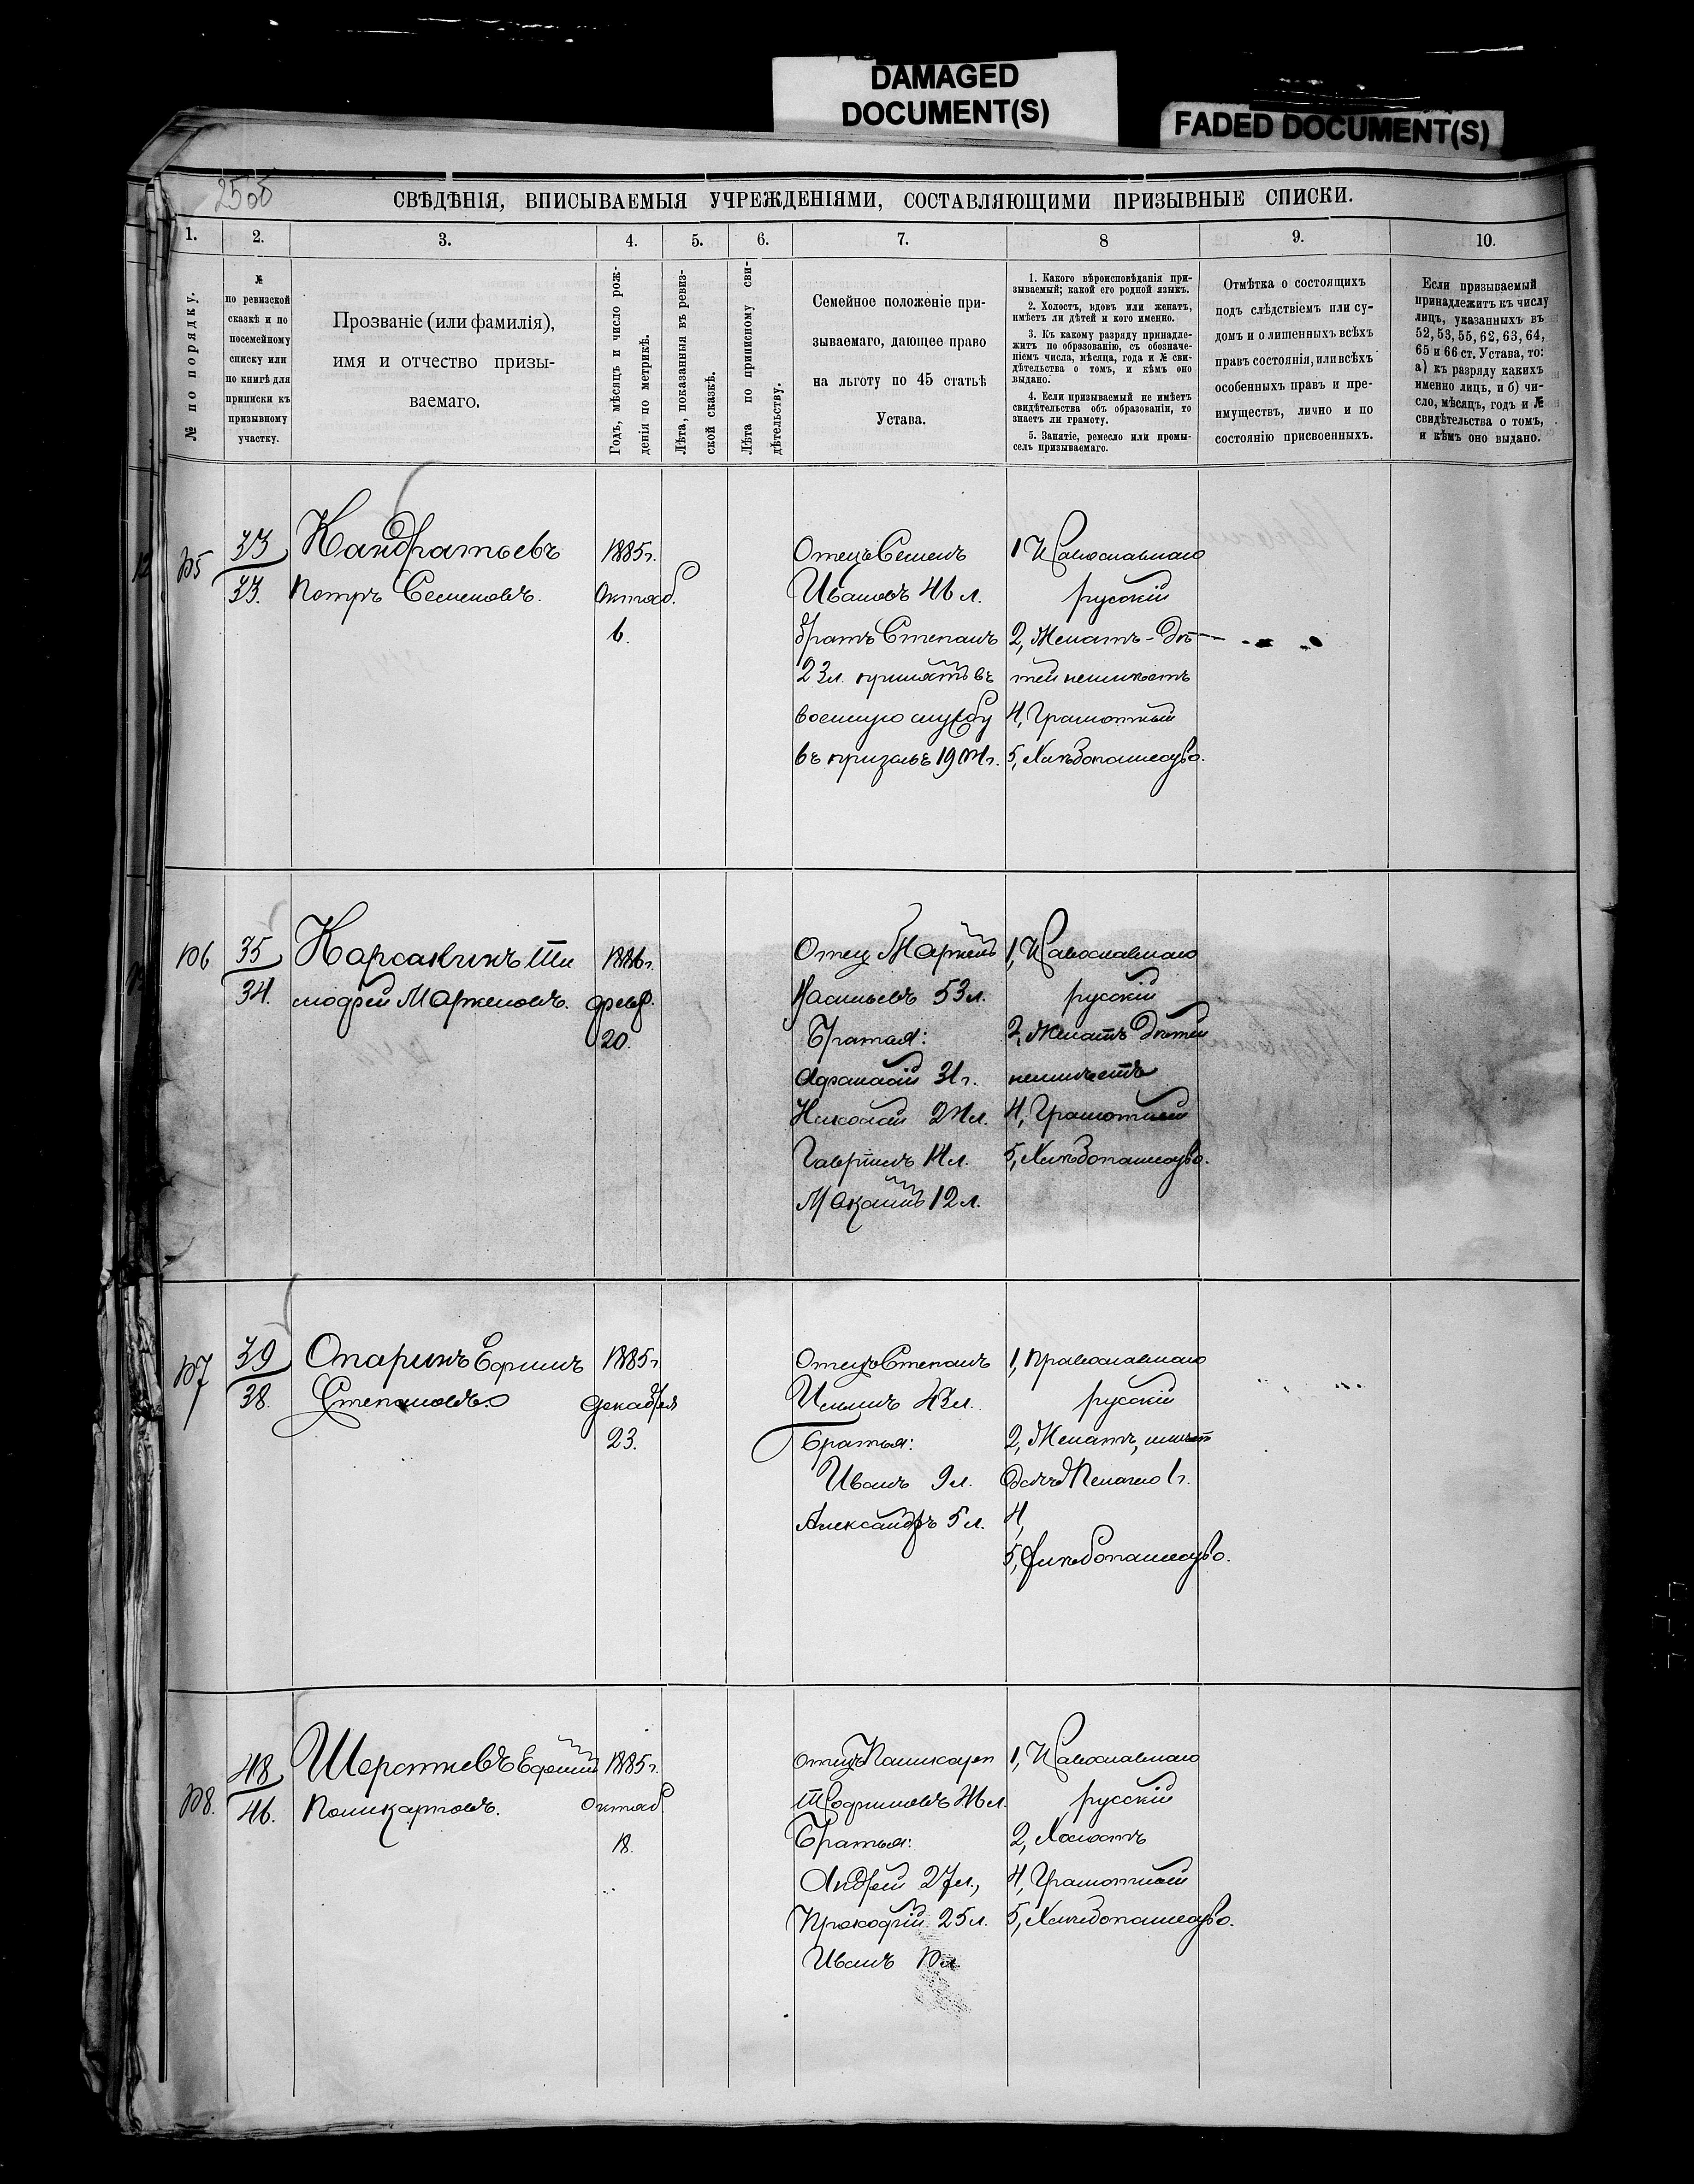 DAMAGED
DOCUMENT(S)
FADED DOCUMENT(S)
СВѢДѢНІЯ, ВПИСЫВАЕМЫЯ УЧРЕЖДЕНІЯМИ, СОСТАВЛЯЮЩИМИ ПРИЗЫВНЫЕ СПИСКИ.
1.
2.
3.
4.
5.
6.
7.
8
9.
10.
№ по порядку.
№
по ревизской
сказкѣ и по
посемейному
списку или
по книгѣ для
приписки къ
призывному
участку.
Прозваніе (или фамилія),
имя и отчество призы-
ваемаго.
Годъ, мѣсяцъ и число рож-
денія по метрикѣ.
Лѣта, показанныя въ ревиз-
ской сказкѣ.
Лѣта по приписному сви-
дѣтельству.
Семейное положеніе при-
зываемаго, дающее право
на льготу по 45 статьѣ
Устава.
1. Какого вѣроисповѣданія при-
зываемый; какой его родной языкъ.
2. Холостъ, вдовъ или женатъ,
имѣетъ ли дѣтей и кого именно.
3. Къ какому разряду принадле-
житъ по образованію, съ обозначе-
ніемъ числа, мѣсяца, года и № сви-
дѣтельства о томъ, и кѣмъ оно
выдано.
4. Если призываемый не имѣетъ
свидѣтельства объ образованіи, то
знаетъ ли грамоту.
5. Занятіе, ремесло или промы-
селъ призываемаго.
Отмѣтка о состоящихъ
подъ слѣдствіемъ или су-
домъ и о лишенныхъ всѣхъ
правъ состоянія, или всѣхъ
особенныхъ правъ и пре-
имуществъ, лично и по
состоянію присвоенныхъ.
Если призываемый
принадлежитъ къ числу
лицъ, указанныхъ въ
52, 53, 55, 62, 63, 64,
65 и 66 ст. Устава, то:
а) къ разряду какихъ
именно лицъ, и б) чи-
сло, мѣсяцъ, годъ и №
свидѣтельства о томъ,
и кѣмъ оно выдано.
105
33
33.
Кандратьевъ
Петръ Семеновъ.
1885г.
Октяб.
6.
Отецъ Семенъ
Ивановъ 46 л.
братъ Степанъ
23л. принятъ въ
военную службу
въ призывъ 1904г.
1 Православнаго
русскій
2, Женатъ - дѣ-
тей неимѣетъ
4, Грамотный
5, Хлѣбопашество.
106
35
34.
Карсакинъ Ти
мофей Маркеловъ.
1886г.
февр.
20.
Отец Маркелъ
Васильевъ 53л.
Братья:
Афанасій 31г.
Николай 24л.
Гавріилъ 14л.
Макаръ 12л.
1, Православнаго
русскій
2, Женатъ Дѣтей
неимѣетъ
4, Грамотный
5, Хлѣбопашество.
107
39
38.
Опаринъ Ефимъ
Степановъ.
1885г.
декабря
23.
Отецъ Степанъ
Ильинъ 43л.
Братья:
Иванъ 9л.
Александръ 5л.
1, православнаго
русскій
2, Женатъ, имѣет
дочь Пелагею 1г.
4,
5, Хлѣбопашество.
108.
48
46.
Ефимъ 1885г.
Поликарповъ.
Октяб.
18.
Отецъ Поликарп
Трофимовъ 46л.
Братья:
Андрей 27л.,
Прокофій 25л.
Иванъ 10л
1, Православнаго
русскій
2, Холостъ
4, Грамотный
5, Хлѣбопашество.